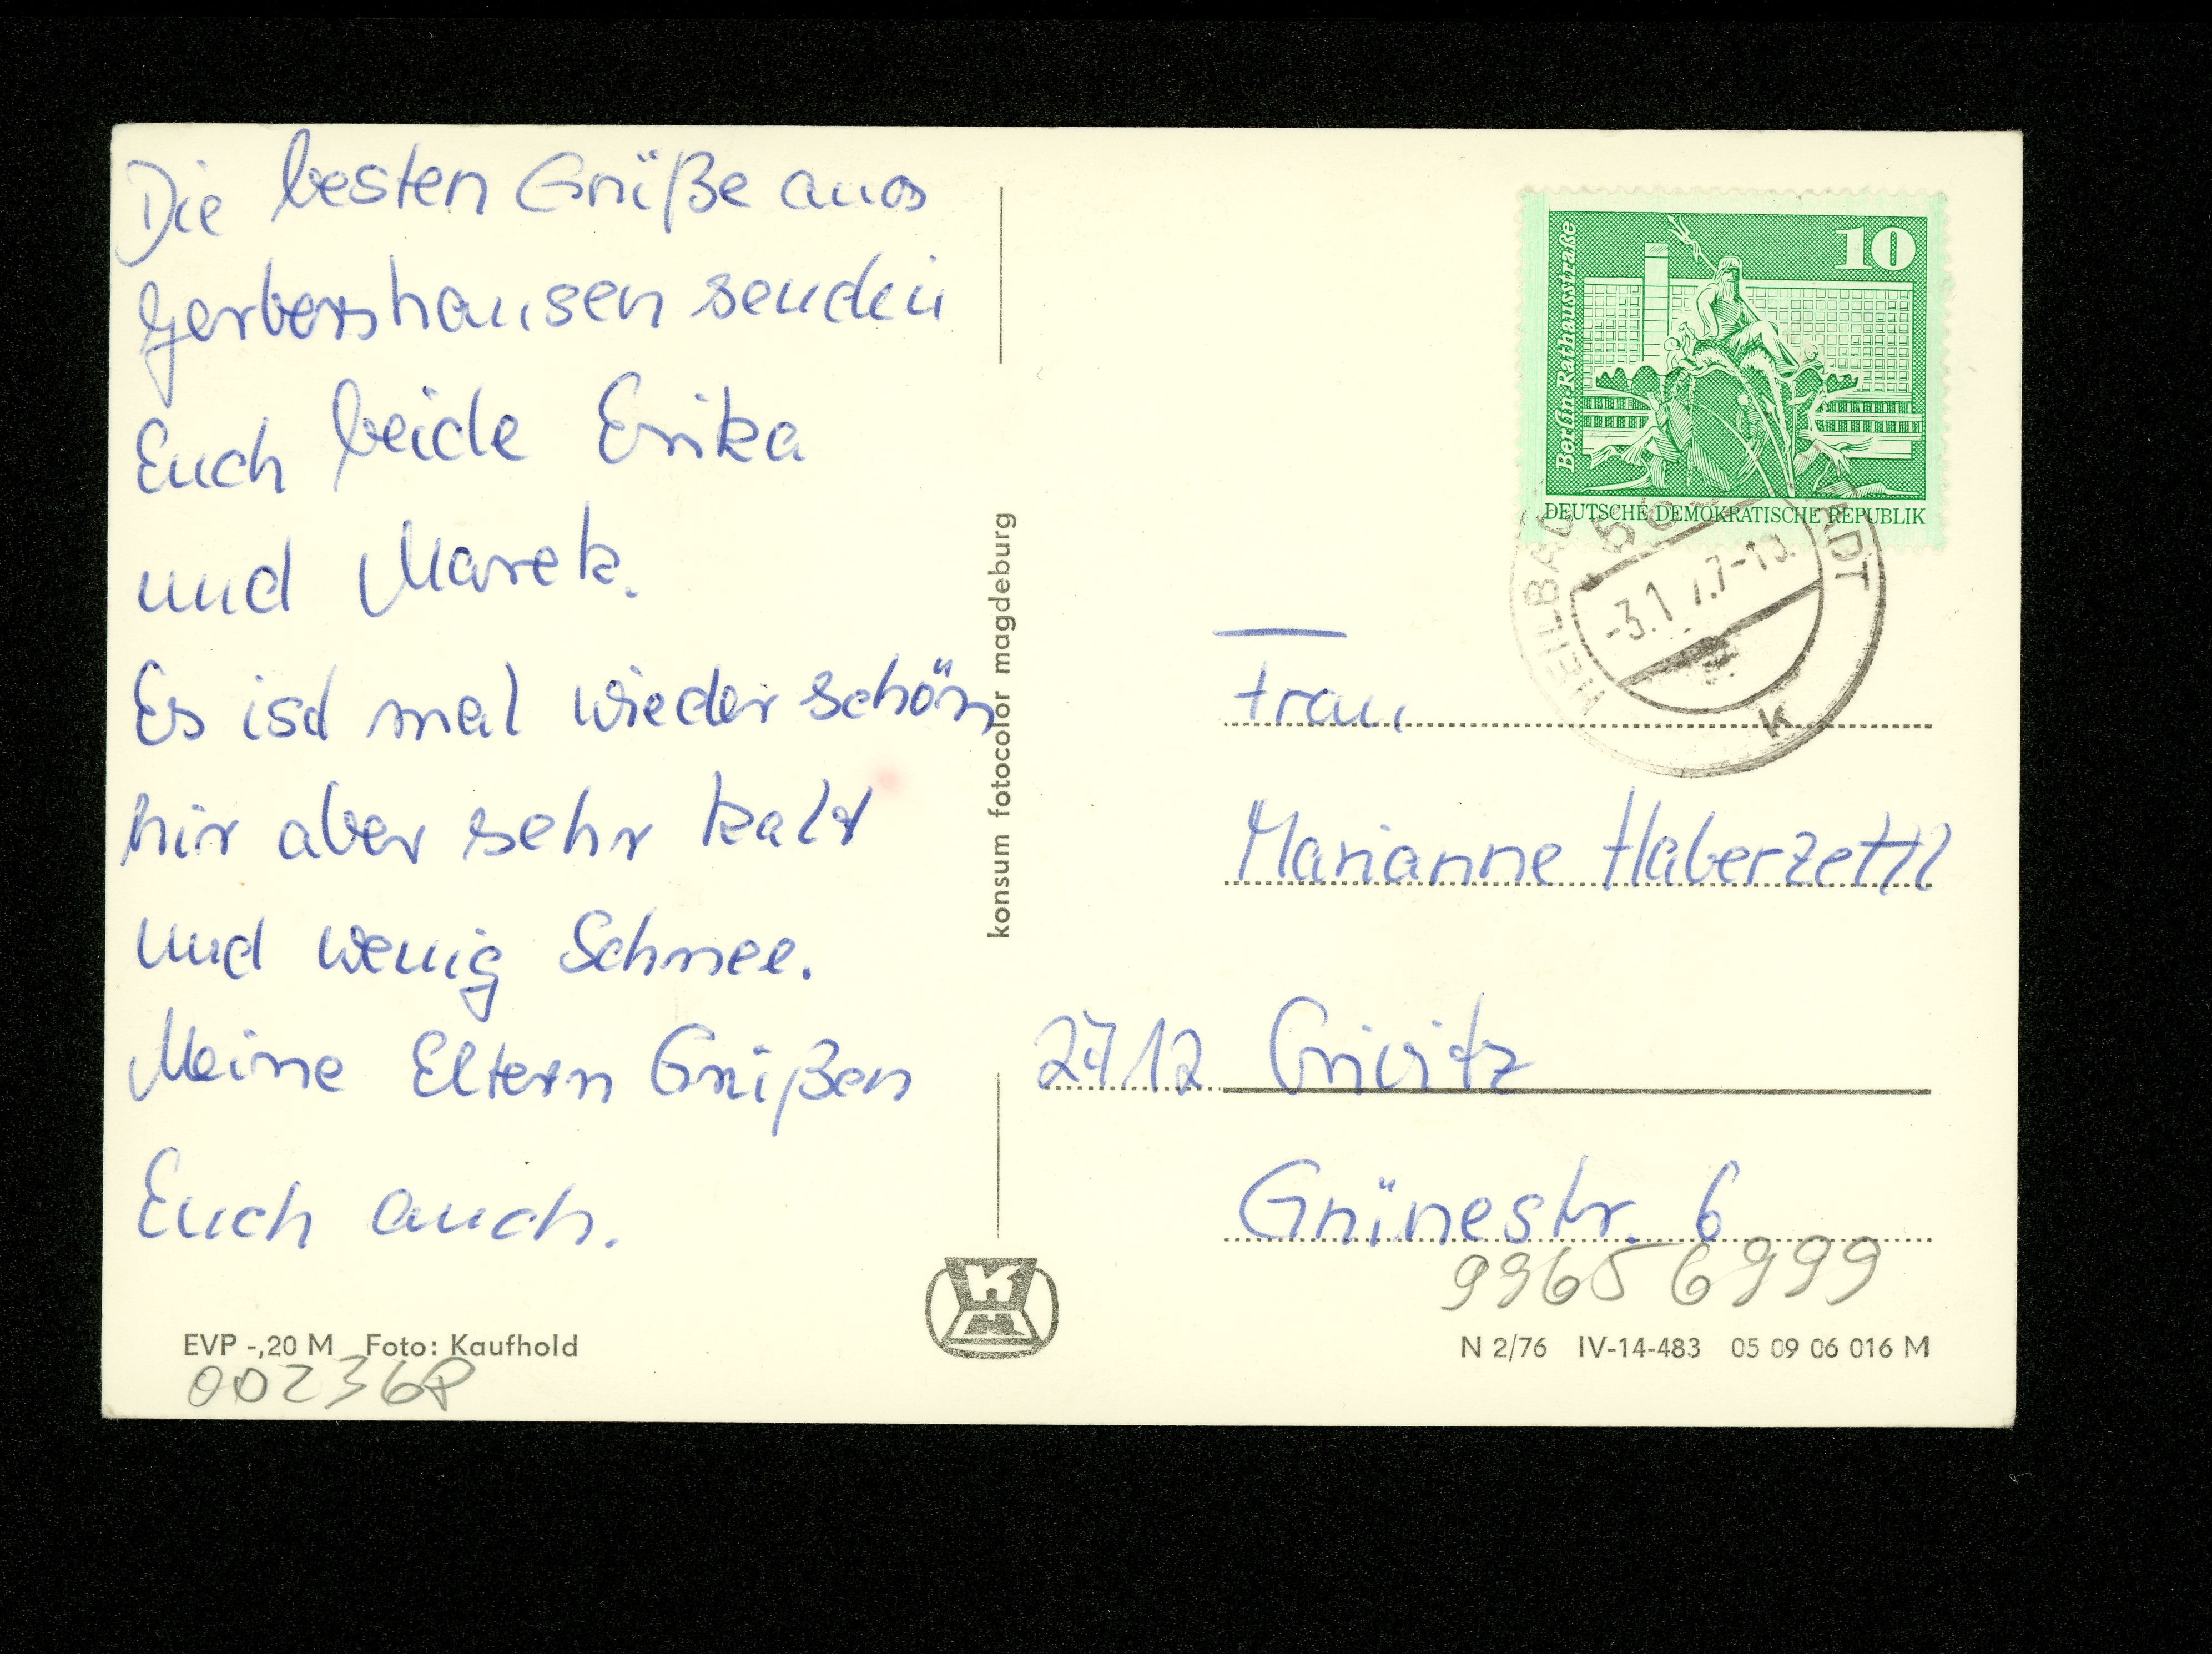 Die besten Grüße aus
Gerbershausen senden
Euch beide Erika
und Marek.
Es isd mal wieder schön
hir aber sehr kalt
und wenig Schnee.
Meine Eltern Grüßen
Euch auch.
EVP -,20 M Foto: Kaufhold
002368
konsum fotocolor magdeburg
10
Berlin, Rathausstraße
DEUTSCHE DEMOKRATISCHE REPUBLIK
HEILBAD
ADT
-3.1.77-
K
Frau
Marianne Haberzettl
2712 Crivitz
Grünestr. 6
99656999
N 2/76 IV-14-483 05 09 06 016 M